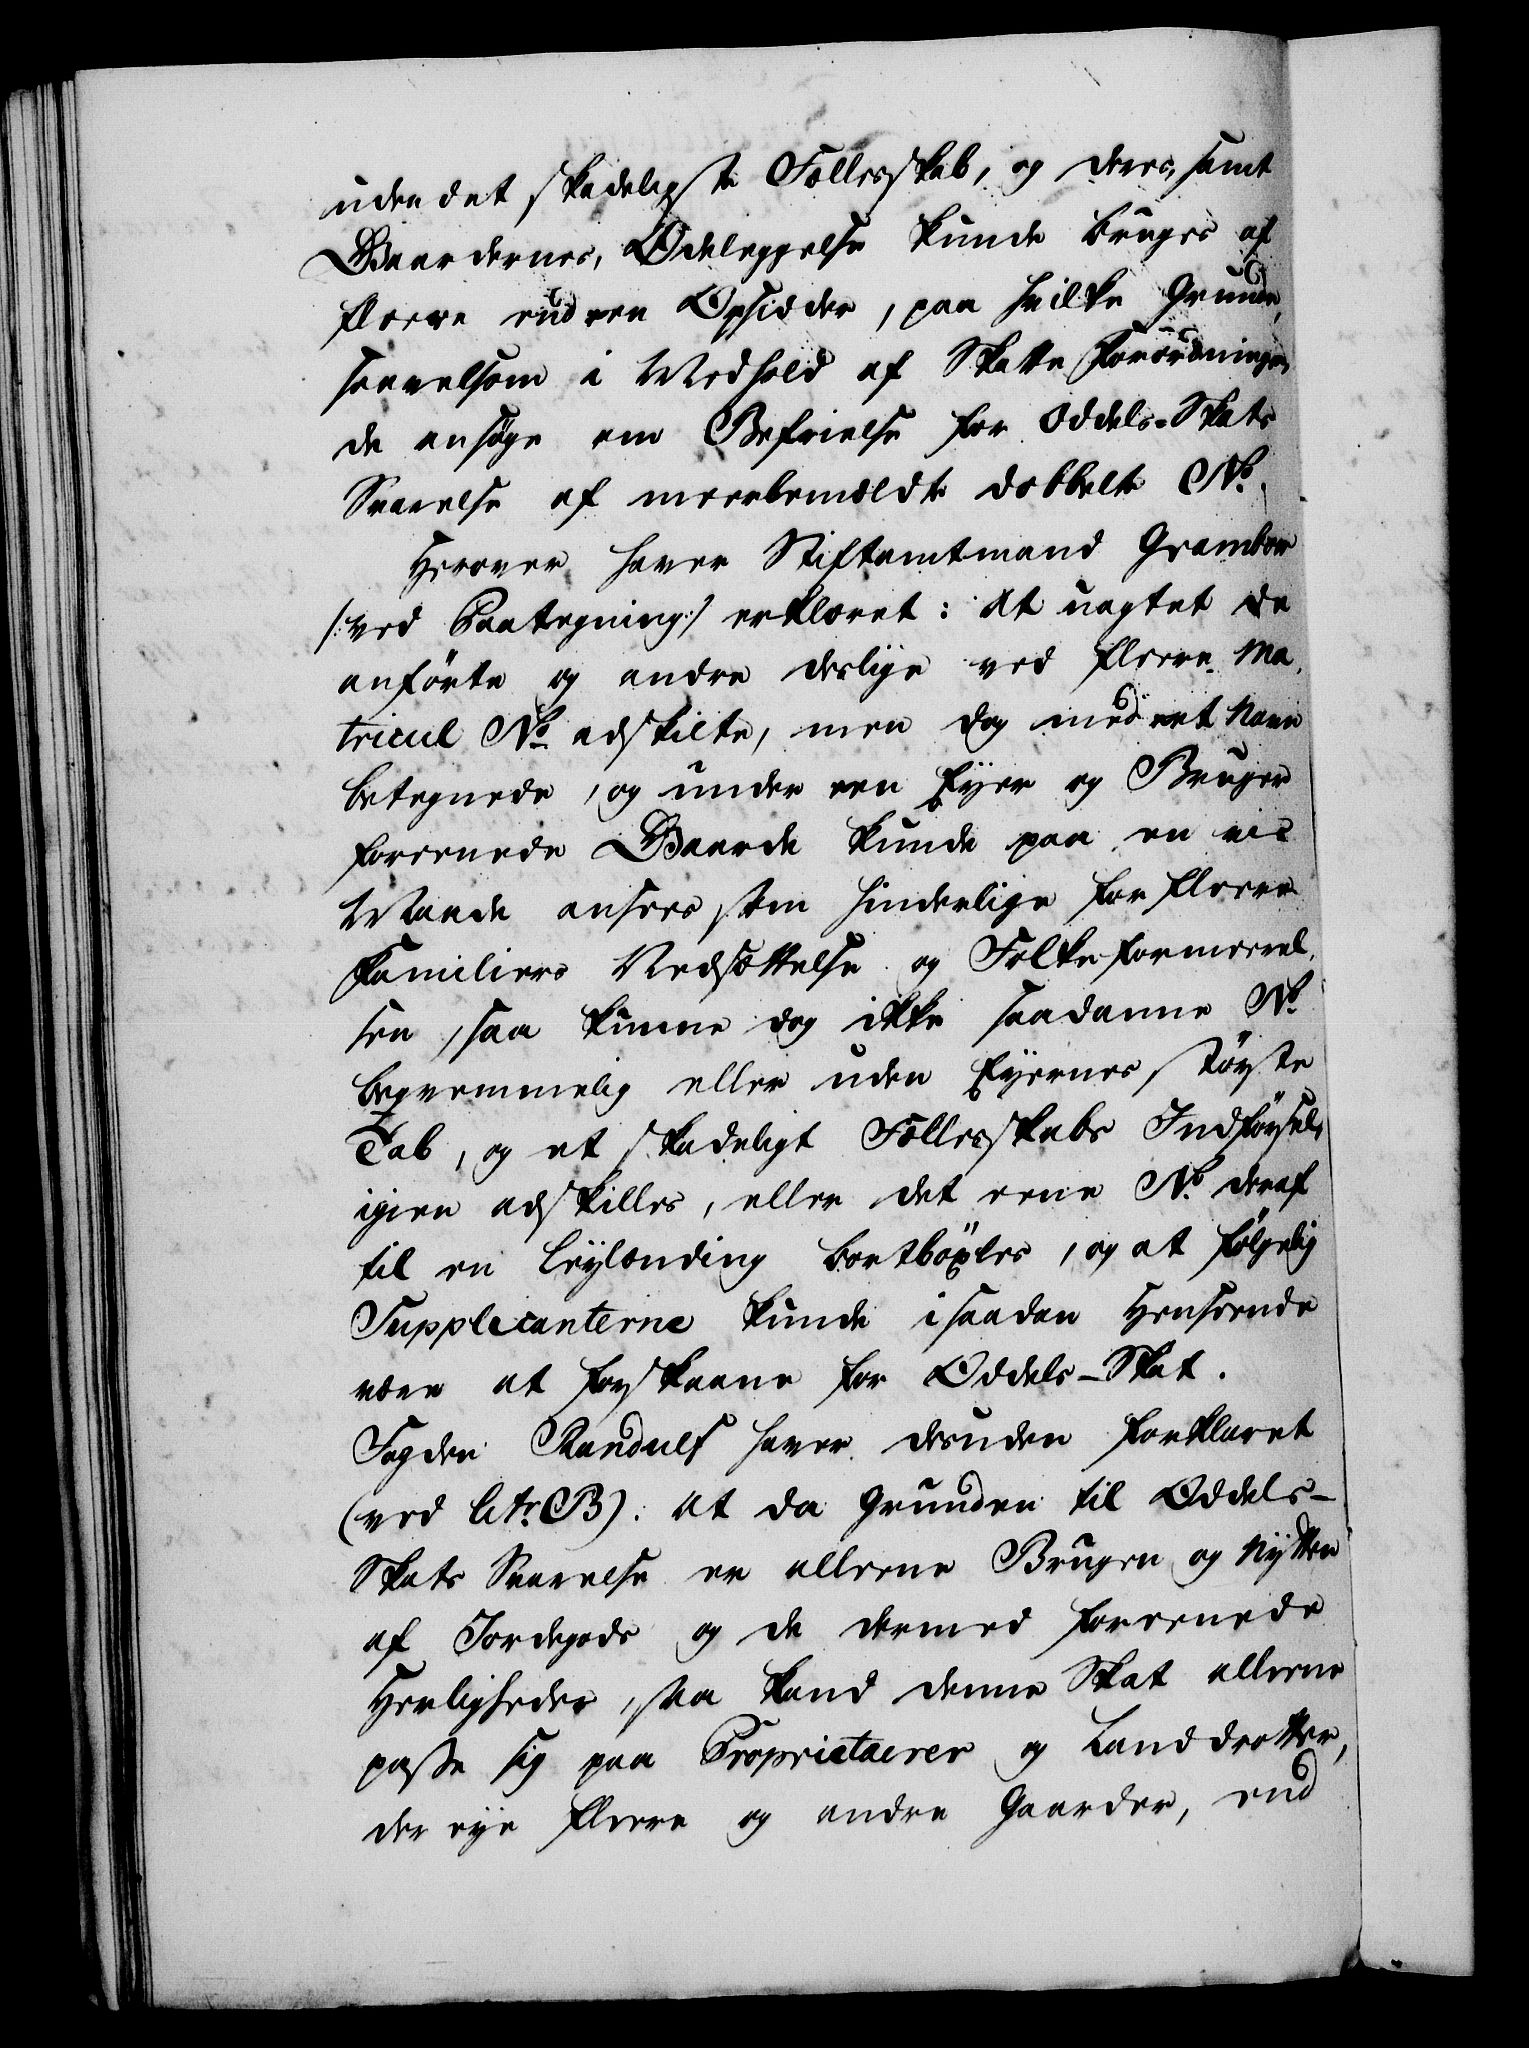 uden det skadeligste Fællesskab, og deres, samt
Gaardernes, Ødeleggelse kunde bruges af
fleere end een Opsidder, paa hvilke Grunde,
saavelsom i Medhold af Skatte Forordningen
de ansøge om Befrielse for Oddels-Skats
Svarelse af meerbemældte dobbelte No.
Herover haver Stiftamtmand Grambow
/:ved Paategning:/ erklæret: At uagtet de
anførte og andre deslige ved fleere Ma-
tricul No. adskilte, men dog med eet Navn
betegnede, og under een Eyer og Bruger
foreenede Gaarde kunde paa en vis
Maade ansees som hinderlige for fleere
Familiers Nedsættelse og Folkeformeerel-
sen, saa kunne dog ikke saadanne No.
beqvemmelig eller uden Eyernes største
Tab, og et skadeligt Fællesskabs Indførsel,
igien adskilles, eller det eene No. deraf
til en Leylænding bortböxles, og at følgelig
Supplicanterne kunde i saadan Henseende
være at forskaane for Oddels-Skat.
Fogden Randulf haver desuden forklaret
(ved Litr. B). at da Grunden til Oddels-
Skats Svarelse er alleene Brugen og Nytten
af Jordegods og de dermed foreenede
Herligheder, saa kand denne Skat alleene
passe sig paa Proprietaerer og Landdrotter,
der eye fleere og andre Gaarder, end